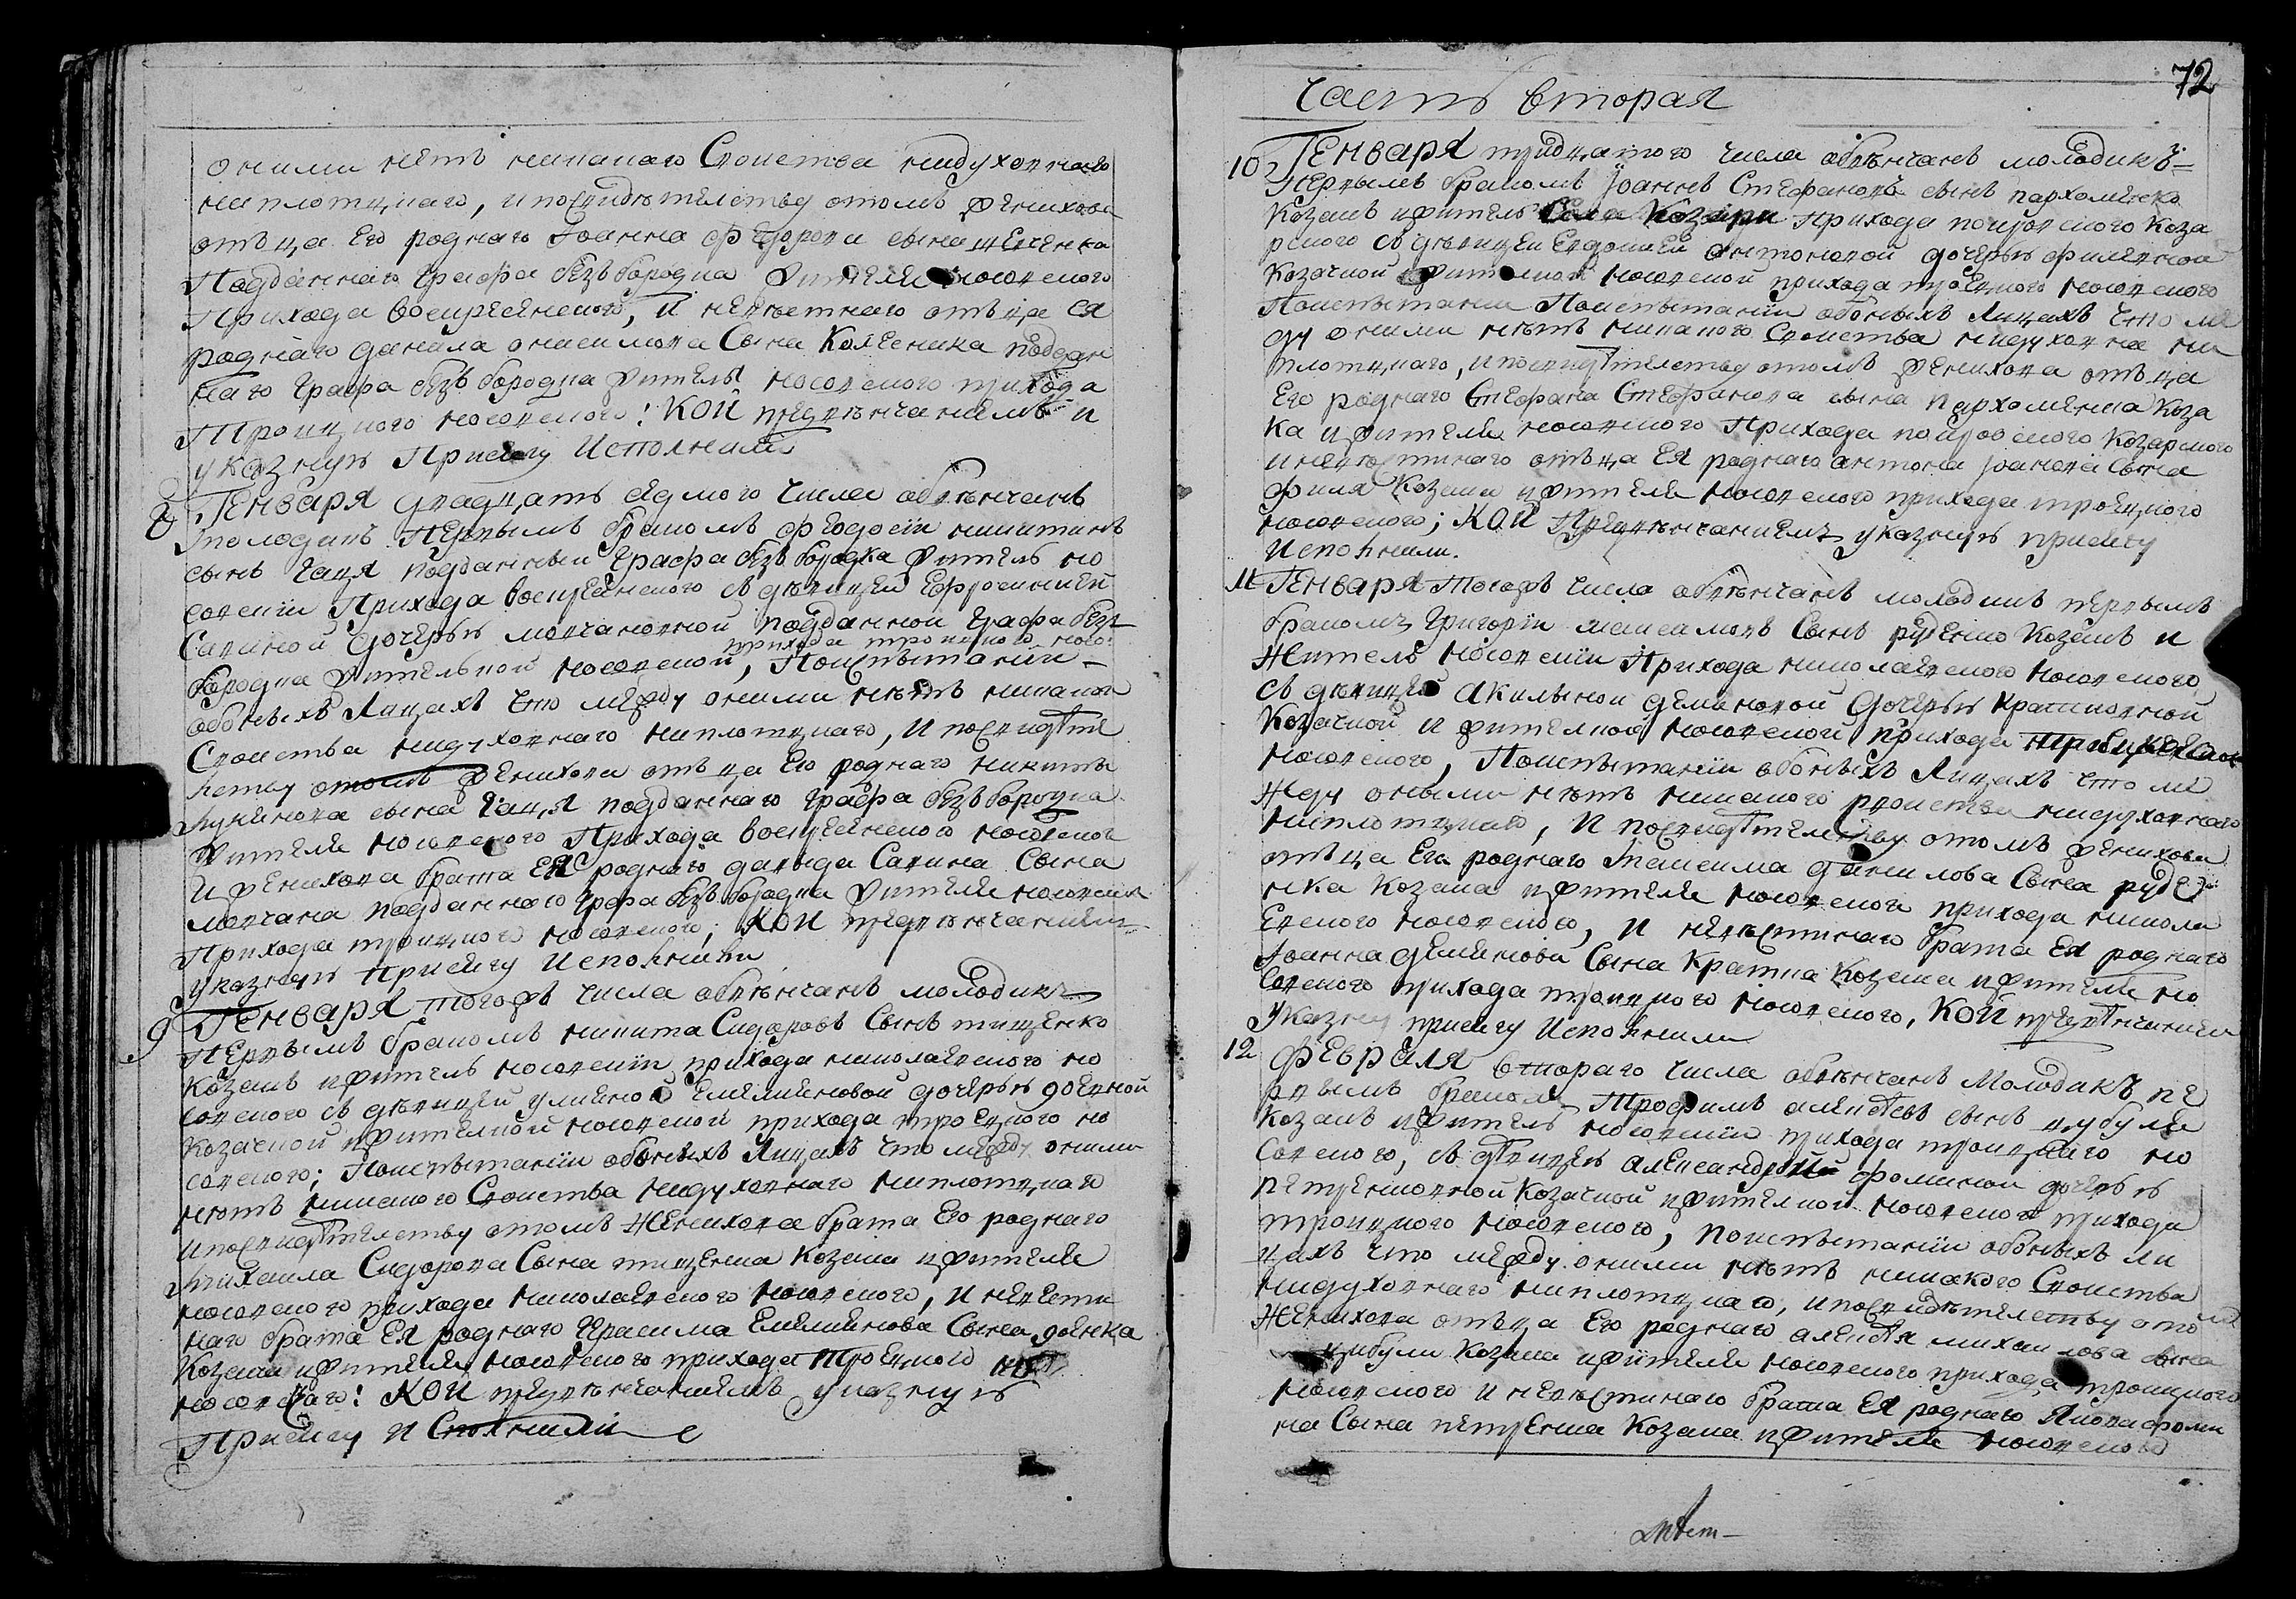 оними нѣтъ никакаго Своиства нидуховнаго
ниплотцкаго, и посвидѣтелству отомъ женихова
отъца Его роднаго Іоанна Федорова сына
Подданнаго Графа безъбородка жителя носовского
Прихода воскресенского, и невѣстнаго отъца Ея
роднаго данила онисимова Сына Колесника поддан
наго Графа безъбородка жителя носовского прихода
Троицкого носовского: КОИ предвѣнчаниемъ и
указную Присягу Исполнили
8 Генваря двадцать седмого Числа обвѣнчанъ
молодикъ Первымъ бракомъ Феодосіи никитинъ
сынъ Гаця подданныи Графа безъбородка житель но
совскіи Прихода воскресенского съ дѣвицеи Ефросиниеи
Савиной дочерью молчановной подданной Графа безъ
прихода троицкого носо:
бородка жителкой носовской, Поиспытаніи
обоныхъ Лицахъ что между оними нѣтъ никакого
Своиства нидуховнаго ниплотцкаго, и посвидѣте
лству отомъ женихова отъца Его роднаго никиты
лукянова сына Гаця подданнаго Графа безъбородка
жителя носовского Прихода воскресенского носовского
И женихова брата Ея роднаго давида Савина Сына
молчана подданнаго Графа безъбородка жителя носовского
Прихода троицкого носовского; КОИ предвѣнчаниемъ
указную Присягу Исполнили
9 Генваря тогожъ Числа обвѣнчанъ молодикъ
Первымъ бракомъ никита Сидоровъ Сынъ тищенко
Козакъ ижитель носовскіи прихода николаевского но
совского съ дѣвицеи улияной Емелияновой дочерью доенкой
Козачкой ижителкой носовской прихода троецкого но
совского; Поиспытаніи обоныхъ Лицахъ что между оними
нѣтъ никакого Своиства нидуховнаго ниплотцкаго
ипосвидѣтелству отомъ Женихова брата Его роднаго
михаила Сидорова Сына тищенка Козака ижителя
носовского прихода николаевского носовского, и невѣсти
наго брата Ея роднаго Герасима Емелиянова Сына доенка
Козака ижителя носовского прихода Троецкого
носовского: КОИ предвѣнчаниемъ указную
Присягу И Сполнили
72
Часть вторая
10 Генваря тридцатого числа обвѣнчанъ молодикъ
Первымъ бракомъ Іоаннъ Стефановъ сынъ пархоменко
Козакъ ижитель Села Козари Прихода покровского Коза
рского съ дѣвицеи Евдокиеи антоновой дочерью филевной
Козачкой жителкой носовской прихода троецкого носовского
Поиспытании Поиспытаніи обоныхъ Лицахъ что ме
ду оними нѣтъ никакого Своиства нидуховна ни
плотцкаго, ипосвидѣтелству отомъ женихова отъца
Его роднаго Стефана Стефанова сына пархоменка Коза
ка ижителя носовского Прихода покровского Козарского
иневѣстинаго отъца Ея роднаго антона Іоанова Сына
филя Козака ижителя носовского прихода троецкого
носовского; КОИ Предвѣнчаниемъ указную присягу
Исполнили.
11 Генваря Тогожъ Числа обвѣнчанъ молодикъ первымъ
бракомъ Григоріи максимовъ Сынъ руденко Козакъ и
Житель носовскіи Прихода николаевского носовского
съ дѣвицеи Акилыной демяновой дочерью Кратковной
Козачкой и жителкой носовской прихода
носовского, Поиспытаніи обоныхъ Лицахъ что ме
жду оными нѣтъ никакого своиства нидуховнаго
ниплотцкаго, И посвидѣтелству отомъ женихова
отъца Его роднаго максима данилова Сына руде
нка Козака ижителя носовского прихода никола
евского носовского, И невѣстинаго брата Ея роднаго
Іоанна демянова Сына Кратка Козака ижителя но
совского прихода троицкого носовского, КОИ предвѣнчаниемъ
указную присягу Исполнили
12 Февраля втораго числа обвѣнчанъ Молодикъ пе
рвымъ бракомъ Трофимъ алексѣевъ сынъ цыбуля
Козакъ ижитель носовскіи прихода троицкаго но
совского, съ дѣвицею александрой фоминой дочерью
петренковной Козачкой ижителкой носовской прихода
троицкого носовского, поиспытаніи обоныхъ ли
цахъ что между оними нѣтъ никакого Своиства
нидуховнаго ниплотцкаго, ипосвидѣтелству отомъ
Женихова отъца Его роднаго алексѣя михаилова сына
цибули Козака ижителя носовского прихода троицкого
носовского и невѣстинаго брата Ея роднаго Якова фоми
на Сына петренка Козака ижителя носовского